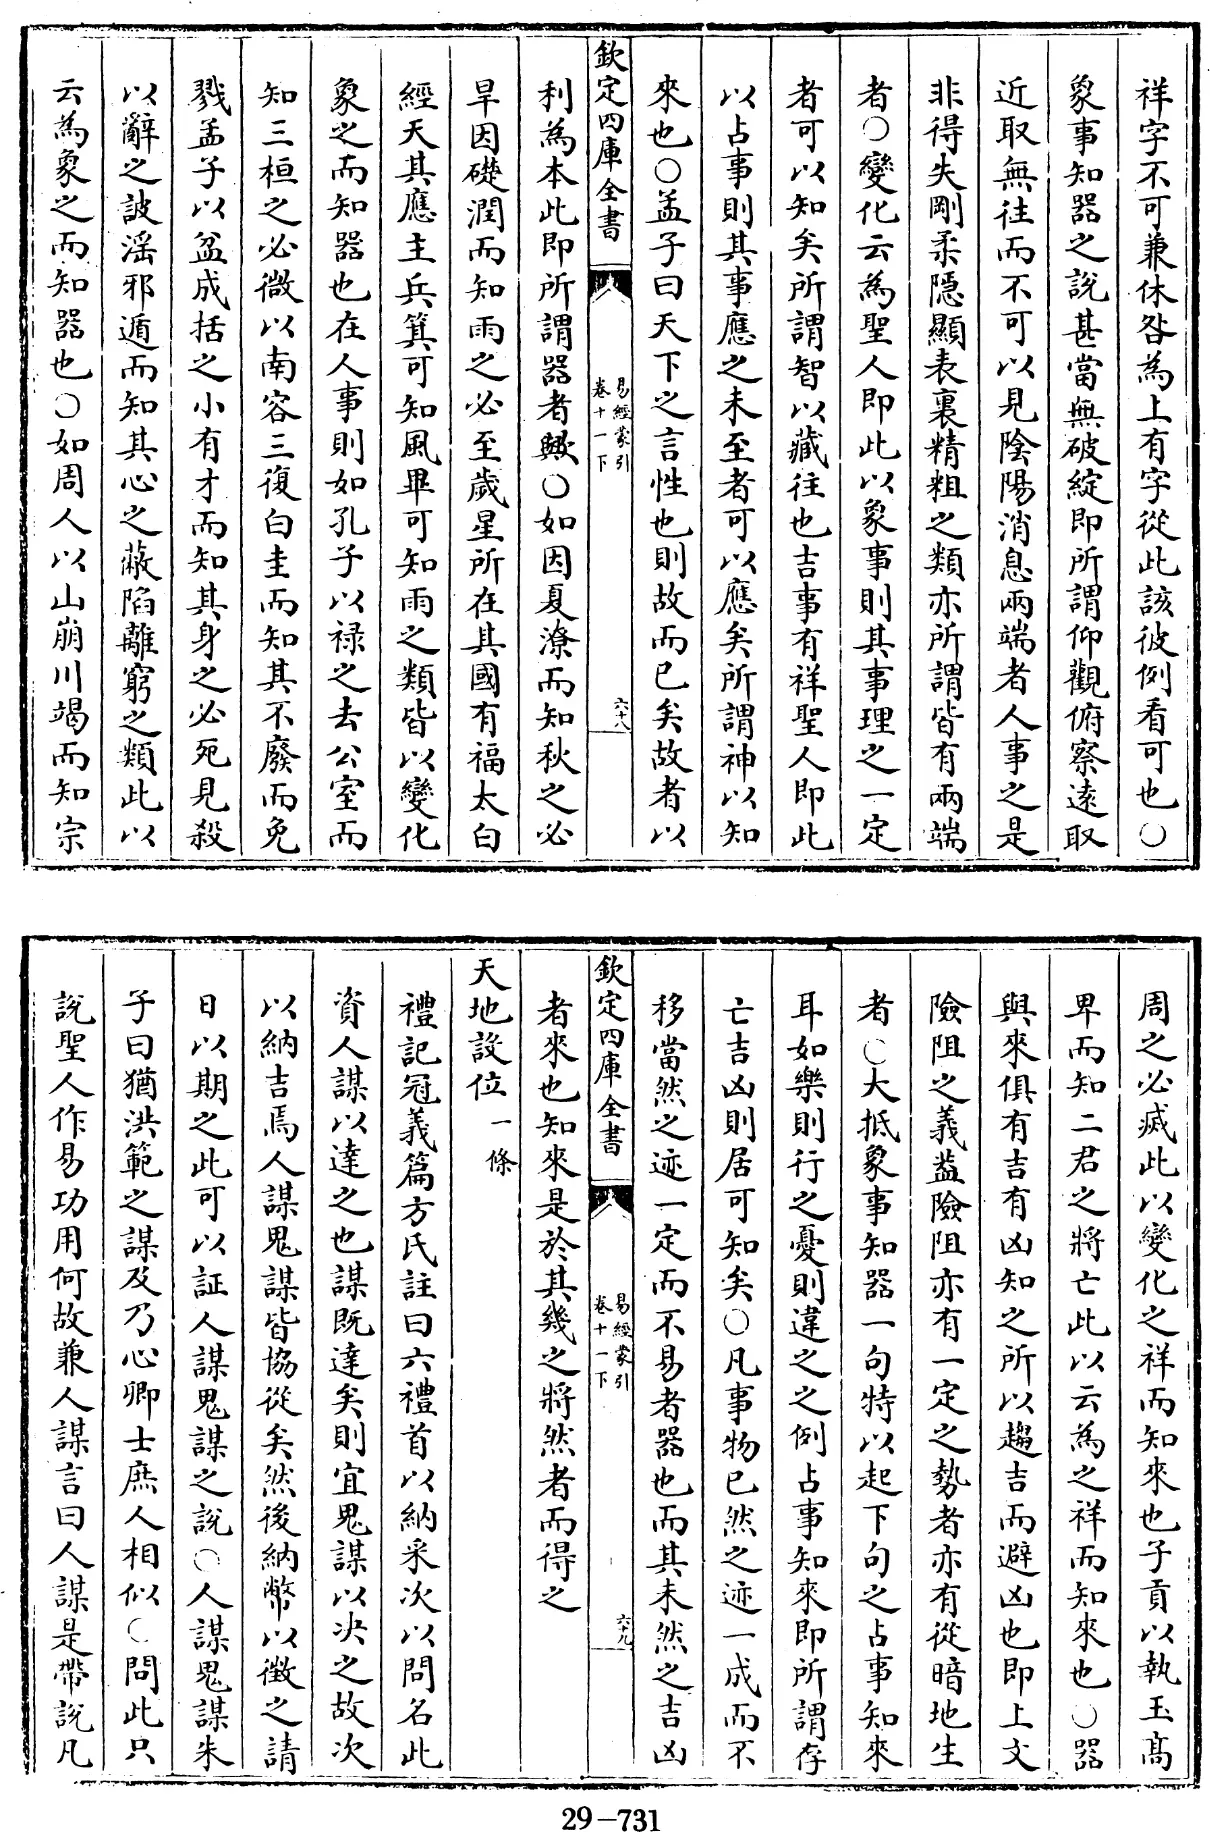 祥字不可兼休咎為上有字從此該彼例看可也○
象事知器之說甚當無破綻即所謂仰觀俯察遠取
近取無往而不可以見陰陽消息兩端者人事之是
非得失剛柔隱顯表裏精粗之類亦所謂皆有兩端
者○變化云為聖人即此以象事則其事理之一定
者可以知矣所謂智以藏往也吉事有祥聖人即此
以占事則其事應之未至者可以應矣所謂神以知
來也○孟子曰天下之言性也則故而已矣故者以
欽定四庫全書
易經蒙引
卷十一下
六十八
利為本此即所謂器者歟○如因夏潦而知秋之必
旱因礎潤而知雨之必至歲星所在其國有福太白
經天其應主兵箕可知風畢可知雨之類皆以變化
象之而知器也在人事則如孔子以祿之去公室而
知三桓之必微以南容三復白圭而知其不廢而免
戮孟子以盆成括之小有才而知其身之必死見殺
以辭之詖淫邪遁而知其心之蔽陷離窮之類此以
云為象之而知器也○如周人以山崩川竭而知宗
周之必滅此以變化之祥而知來也子貢以執玉高
卑而知二君之將亡此以云為之祥而知來也○器
與來俱有吉有凶知之所以趨吉而避凶也即上文
險阻之義蓋險阻亦有一定之勢者亦有從暗地生
者○大抵象事知器一句特以起下句之占事知來
耳如樂則行之憂則違之之例占事知來即所謂存
亡吉凶則居可知矣○凡事物已然之迹一成而不
移當然之迹一定而不易者器也而其未然之吉凶
欽定四庫全書
易經蒙引
卷十一下
六十九
者來也知來是於其幾之將然者而得之
天地設位 一條
禮記冠義篇方氏註曰六禮首以納采次以問名此
資人謀以達之也謀既達矣則宜鬼謀以決之故次
以納吉焉人謀鬼謀皆協從矣然後納幣以徵之請
日以期之此可以証人謀鬼謀之說○人謀鬼謀朱
子曰猶洪範之謀及乃心卿士庶人相似○問此只
說聖人作易功用何故兼人謀言曰人謀是帶說凡
29-731